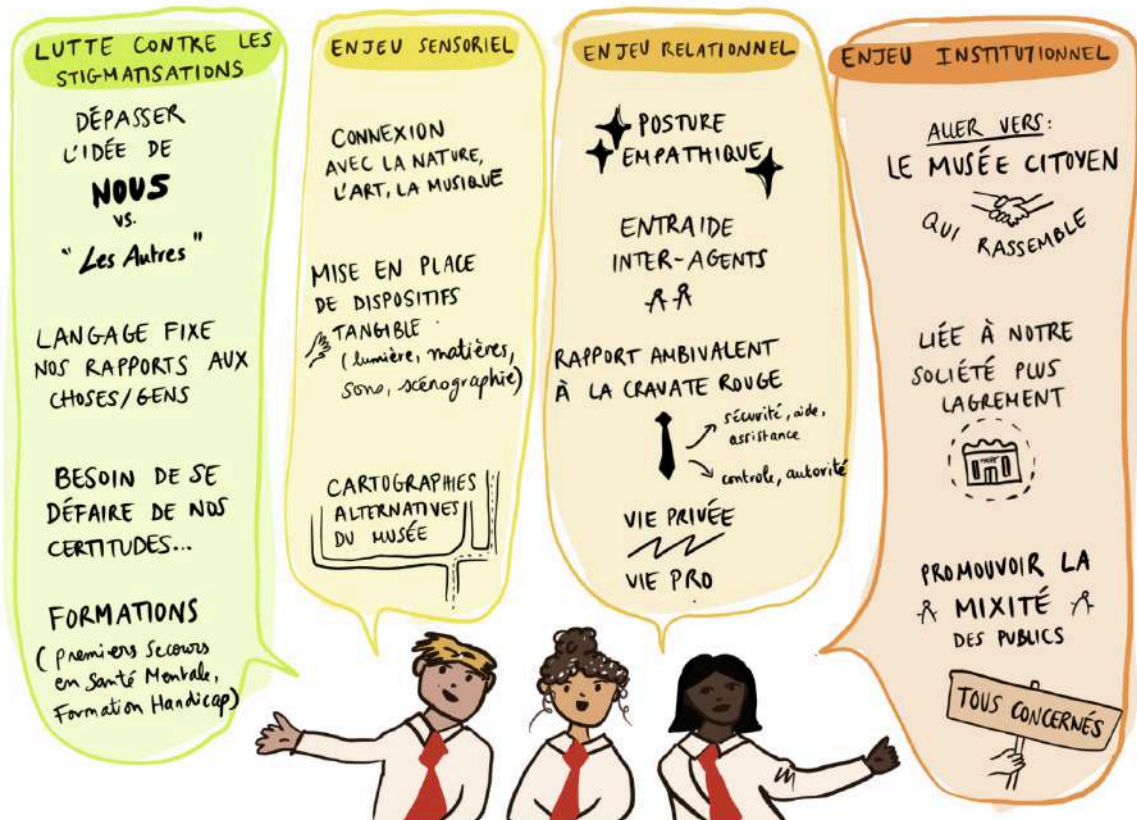 LUTTE CONTRE LES
STIGMATISATIONS
DÉPASSER
L'IDÉE DE
NOUS
VS.
"Les Autres"
LANGAGE FIXE
NOS RAPPORTS AUX
CHOSES/GENS
BESOIN DE SE
DÉFAIRE DE NOS
CERTITUDES...
FORMATIONS
(Premiers Secours
en Santé Mentale,
Formation Handicap)
ENJEU SENSORIEL
CONNEXION
AVEC LA NATURE,
L'ART, LA MUSIQUE
MISE EN PLACE
DE DISPOSITIFS
TANGIBLE
(lumière, matières,
sons, scénographie)
CARTOGRAPHIES
ALTERNATIVES
DU MUSÉE
ENJEU RELATIONNEL
POSTURE
EMPATHIQUE
ENTRAIDE
INTER-AGENTS
RAPPORT AMBIVALENT
À LA CRAVATE ROUGE
sécurité, aide,
assistance
controle, autorité
VIE PRIVÉE
VIE PRO
ENJEU INSTITUTIONNEL
ALLER VERS:
LE MUSÉE CITOYEN
QUI RASSEMBLE
LIÉE À NOTRE
SOCIÉTÉ PLUS
LAGREMENT
PROMOUVOIR LA
MIXITÉ
DES PUBLICS
TOUS CONCERNÉS